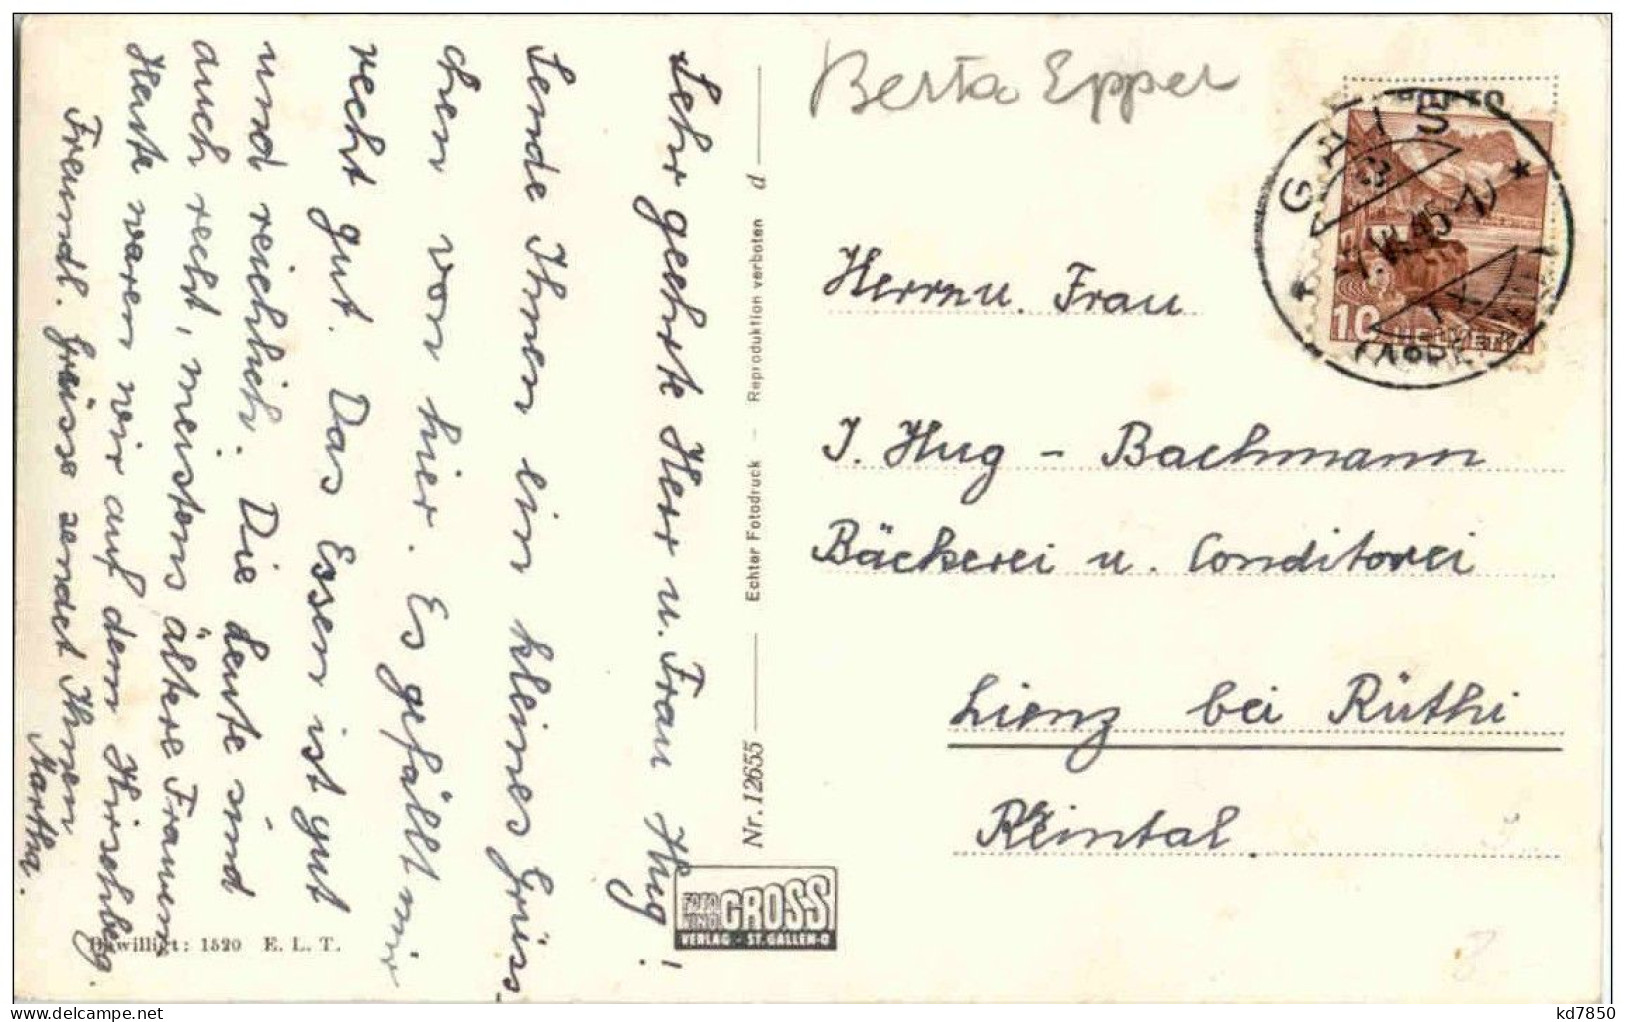 Sehr geehrte Herr u. Frau Hug!
Sende Ihnen ein kleines Grüss-
chen von hier. Es gefällt mir
recht gut. Das Essen ist gut
und reichlich. Die Leute sind
auch recht, meistens ältere Frauen.
Heute waren wir auf dem Hirschberg.
Freundl. Grüsse sendet Ihnen
Martha.
Bewilligt: 1520 E. L. T.
Nr. 12655 Echter Fotodruck - Reproduktion verboten d
FOTO GROSS
VERLAG ST. GALLEN-O
Berta Epper
GAIS
VII.45
10 HELVETIA
Herrn u. Frau
J. Hug - Bachmann
Bäckerei u. Conditorei
Lienz bei Rüthi
Rheintal.
kd7850